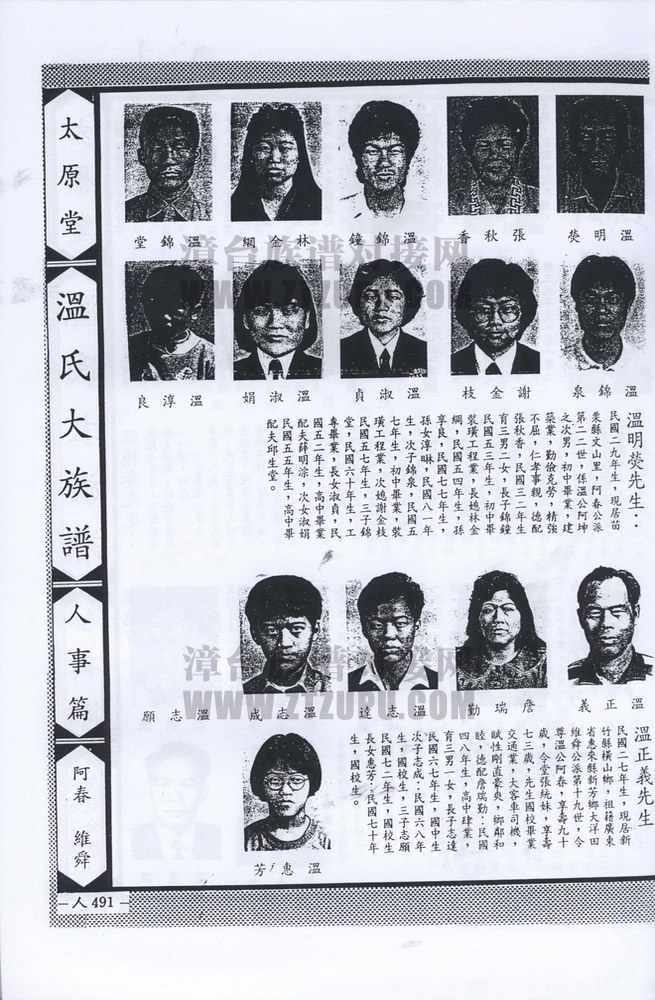 太原堂
溫氏大族譜
人事篇
阿春 維舜
人 491
溫明熒
張秋香
溫錦鐘
林金綢
溫錦堂
漳台族谱对接网
WWW.ZTZUPU.COM
溫錦泉
謝金枝
溫淑貞
溫淑娟
溫淳良
溫明熒先生：
民國二九年生，現居苗
栗縣文山里，阿春公派
第二二世，係溫公阿坤
之次男，初中畢業，建
築業，勤儉克勞，精強
不屈，仁孝事親，德配
張秋香，民國三二年生
育三男二女，長子錦鐘
民國五三年生，初中畢
裝璜工程業，長媳林金
綢，民國五四年生，孫
享良，民國七七年生，
孫女淳琳，民國八一年
生，次子錦泉，民國五
七年生，初中畢業，裝
璜工程業，次媳謝金枝
民國五七年生，三子錦
堂，民國六十年生，工
專畢業，長女淑貞，民
國五二年生，高中畢業
配夫薛明淙，次女淑娟
民國五五年生，高中畢
配夫邱生堂。
溫正義
詹瑞勤
溫志達
溫志成
溫志願
漳台族谱对接网
WWW.ZTZUPU.COM
溫正義先生
民國二七年生，現居新
竹縣橫山鄉，祖籍廣東
省惠來縣新芳鄉大洋田
維舜公派第十九世，令
尊溫公阿春，享壽九十
歲，令堂張統妹，享壽
七三歲，先生國校畢業
交通業，大客車司機，
賦性剛直豪爽，鄉鄰和
睦，德配詹瑞勤：民國
四八年生，高中肄業，
育三男一女，長子志達
民國六七年生，國中生
次子志成：民國六八年
生，國校生，三子志願
民國七二年生，國校生
長女惠芳：民國七十年
生，國校生。
溫惠芳